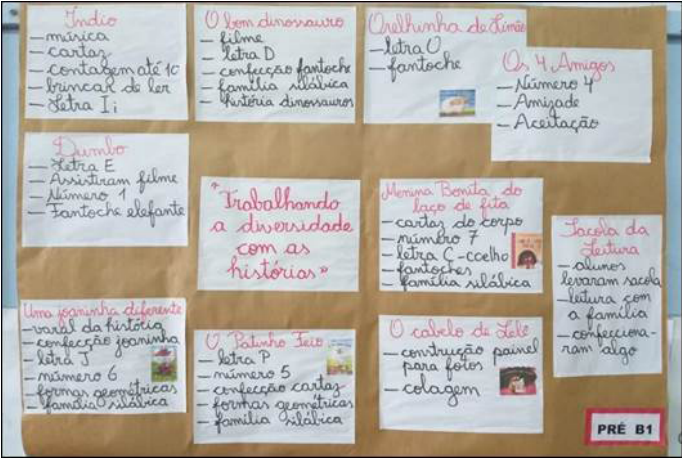 Índio
– música
– cartaz
– contagem até 10
– brincar de ler
– Letra I i
O bom dinossauro
– filme
– letra D
– confecção fantoche
– família silábica
– história dinossauros
Orelhinha de Limão
– letra O
– fantoche
Os 4 Amigos
– Número 4
– Amizade
– Aceitação
Dumbo
– Letra E
– Assistiram filme
– Número 1
– Fantoche elefante
"Trabalhando
a diversidade
com as
histórias"
Menina Bonita do
laço de fita
– cartaz do corpo
– número 7
– letra C-coelho
– fantoches
– família silábica
Sacola da
Leitura
– alunos
levaram sacola
– leitura com
a família
– confecciona-
ram algo
Uma joaninha diferente
– varal da história
– confecção joaninha
– letra J
– número 6
– formas geométricas
– família silábica
O Patinho Feio
– letra P
– número 5
– confecção cartaz
– formas geométricas
– família silábica
O cabelo de Lelê
– construção painel
para fotos
– colagem
PRÉ B1